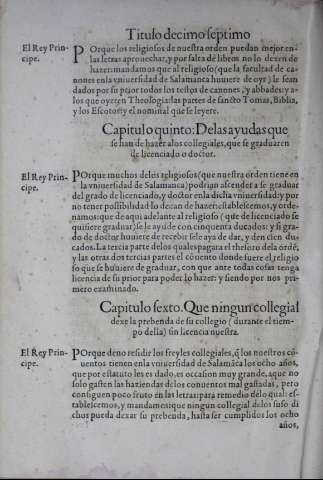 Titulo decimo septimo
El Rey Prin-
cipe.
POrque los religiosos de nuestra orden puedan mejor en-
las letras aprouechar, y por falta d libros no lo dexen de
hazer: mandamos que al religioso (que la facultad de ca-
nones en la vniuersidad de Salamanca huuiere de oyr) le sean
dados por su prior todos los testos de canones, y abbades: y a-
los que oyeren Theologia: las partes de sancto Tomas, Biblia,
y los Escotos: y el nominal que se leyere.
Capitulo quinto: De las ayudas que
se han de hazer a los collegiales, que se graduaren
de licenciado o doctor.
El Rey Prin-
cipe.
POrque muchos delos religiosos (que nuestra orden tiene en
la vniuersidad de Salamanca) podrian ascender a se graduar
del grado de licenciado, y doctor en la dicha vniuersidad: y por
no tener possibilidad lo dexan de hazer: establescemos, y orde-
namos: que de aqui adelante al religioso (que de licenciado se
quisiere graduar) se le ayude con cinquenta ducados: y si gra-
do de doctor huuiere de recebir se le aya de dar, y den cien du-
cados. La tercia parte delos quales pagara el thesoro dela ordē,
y las otras dos tercias partes el cōuento donde fuere el religio
so que se huuiere de graduar, con que ante todas cosas tenga
licencia de su prior para poder lo hazer: y siendo por nos pri-
mero examinado.
Capitulo sexto. Que ningun collegial
dexe la prebenda de su collegio (durante el tiem-
po della) sin licencia nuestra.
El Rey Prin-
cipe.
POrque de no residir los freyles collegiales, q̄ los nuestros cō-
uentos tienen en la vniuersidad de Salamāca los ocho años,
que por estatuto les es dado, es occasion muy grande, aque no
solo gasten las haziendas delos conuentos mal gastadas, pero
consiguen poco fruto en las letras: para remedio dello qual: es-
tablescemos, y mandamos: que ningun collegial delos suso di
chos pueda dexar su prebenda, hasta ser cumplidos los ocho
años,